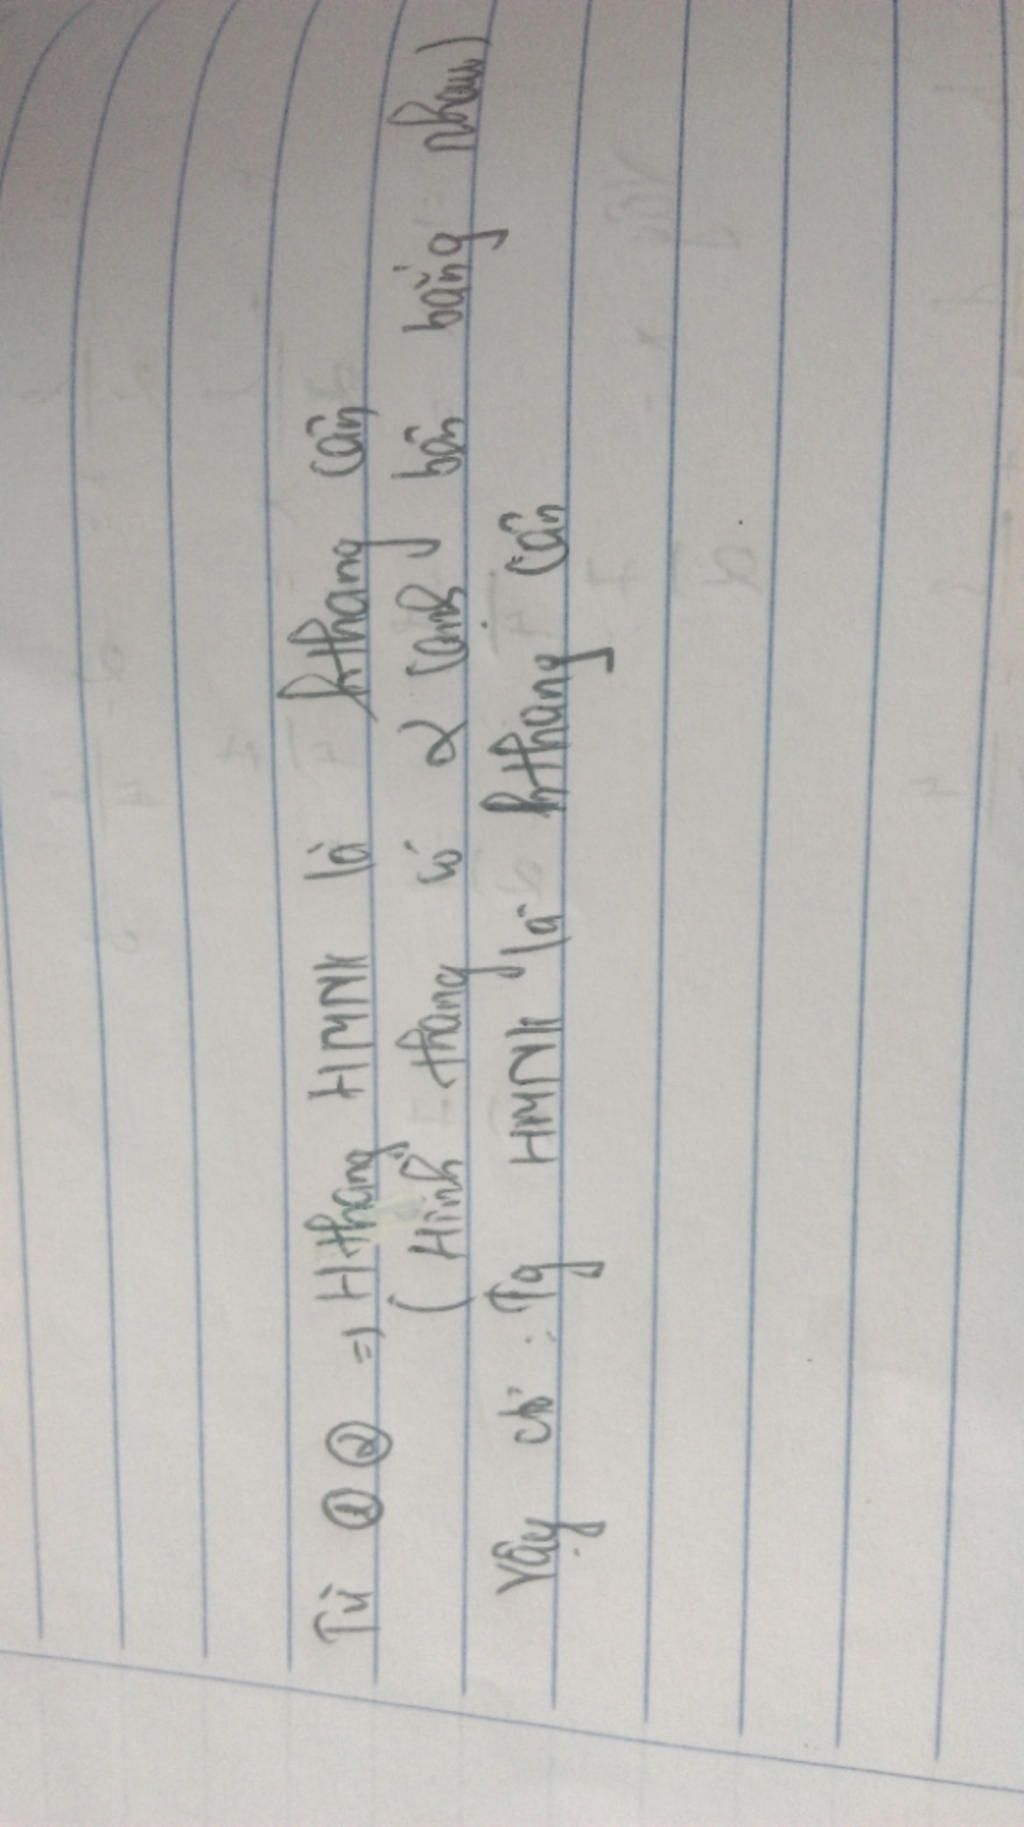 Từ ① ② => Hthang HMNK là hthang cân
( Hình thang có 2 cạnh bên bằng nhau)
Vậy : Tg HMNK là hthang cân